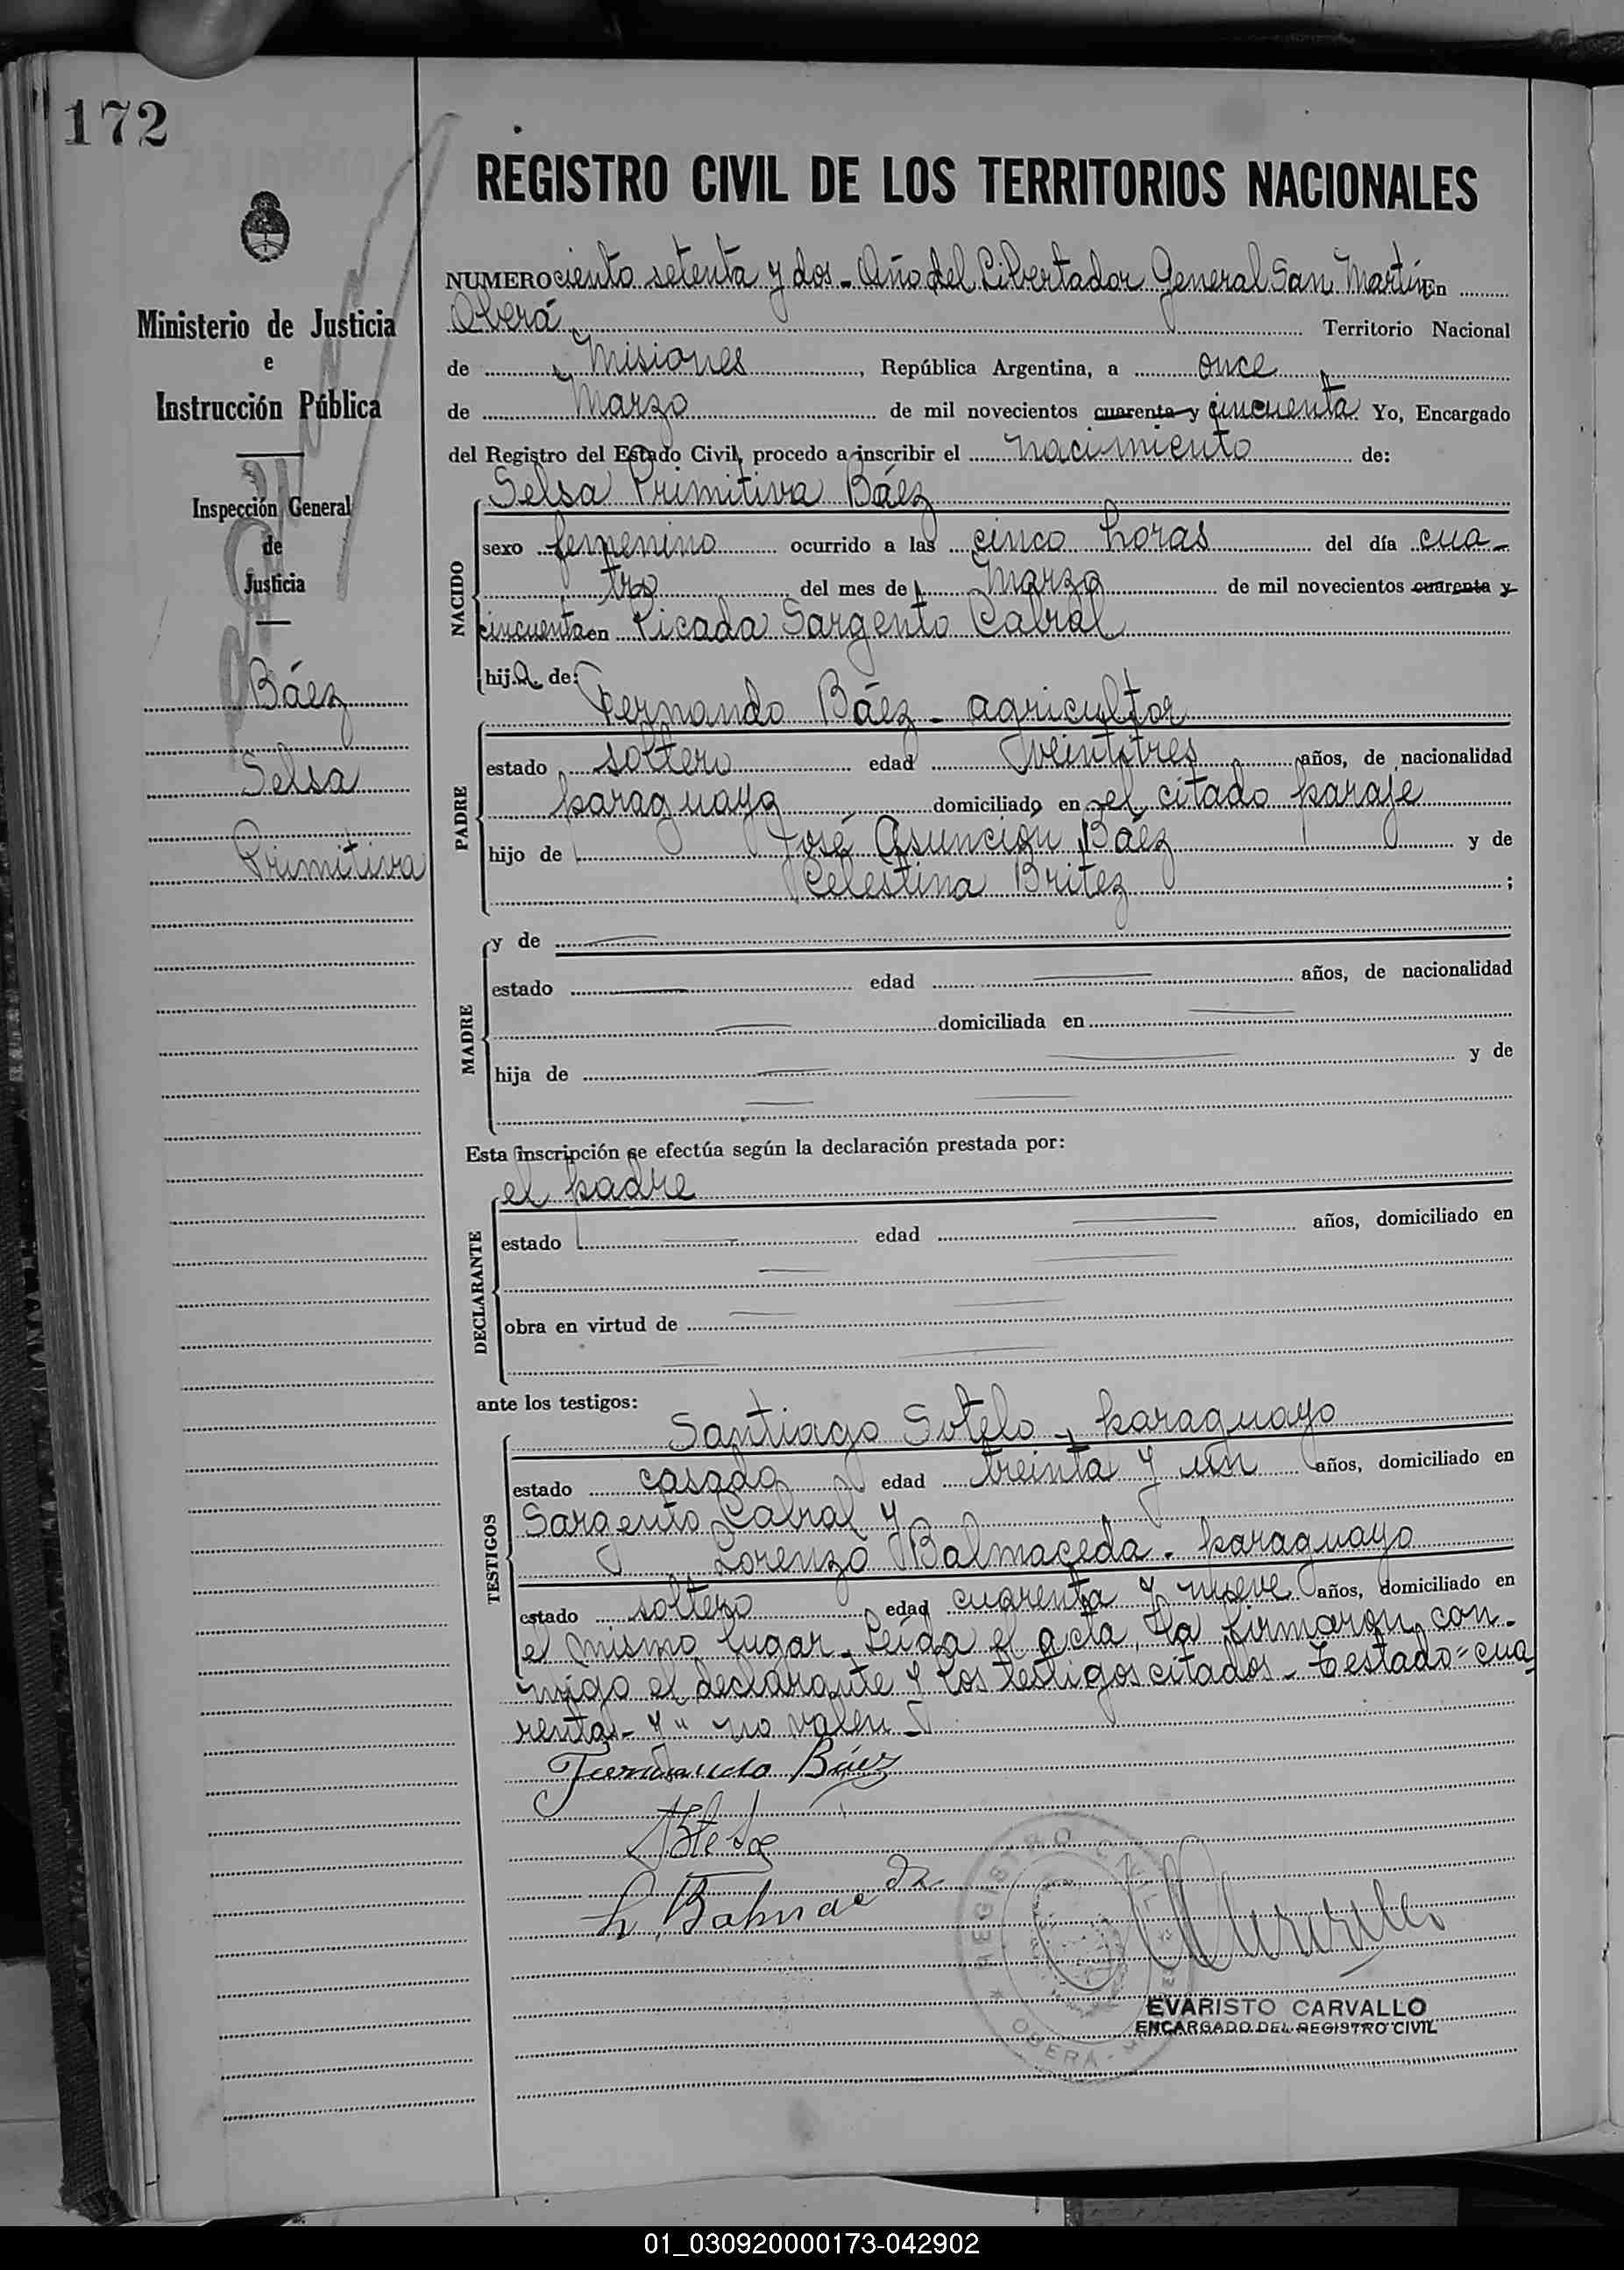 172
REGISTRO CIVIL DE LOS TERRITORIOS NACIONALES
Ministerio de Justicia
e
Instrucción Pública
Inspección General
de
Justicia
Báez
Selsa
Primitiva
NUMERO ciento setenta y dos - Año del Libertador General San Martín En
Oberá Territorio Nacional
de Misiones, República Argentina, a once
de Marzo de mil novecientos cuarenta y cincuenta Yo, Encargado
del Registro del Estado Civil, procedo a inscribir el nacimiento de:
NACIDO
Selsa Primitiva Báez
sexo femenino ocurrido a las cinco horas del día cua-
tro del mes de Marzo de mil novecientos cuarenta y
cincuenta en Picada Sargento Cabral
hija de:
PADRE
Fernando Báez - agricultor
estado soltero edad veintitres años, de nacionalidad
paraguaya domiciliado en el citado paraje
hijo de José Asunción Báez y de
Celestina Britez ;
MADRE
y de
estado edad años, de nacionalidad
domiciliada en
hija de y de
Esta inscripción se efectúa según la declaración prestada por:
DECLARANTE
el padre
estado edad años, domiciliado en
obra en virtud de
ante los testigos:
TESTIGOS
Santiago Sotelo - paraguayo
estado casado edad treinta y un años, domiciliado en
Sargento Cabral y
Lorenzo Balmaceda - paraguayo
estado soltero edad cuarenta y nueve años, domiciliado en
el mismo lugar. Leída el acta, la firmaron con-
migo el declarante y los testigos citados - Testado = cua
renta - y " no valen -
Fernando Báez
REGISTRO CIVIL
OBERA
EVARISTO CARVALLO
ENCARGADO DEL REGISTRO CIVIL
01_030920000173-042902